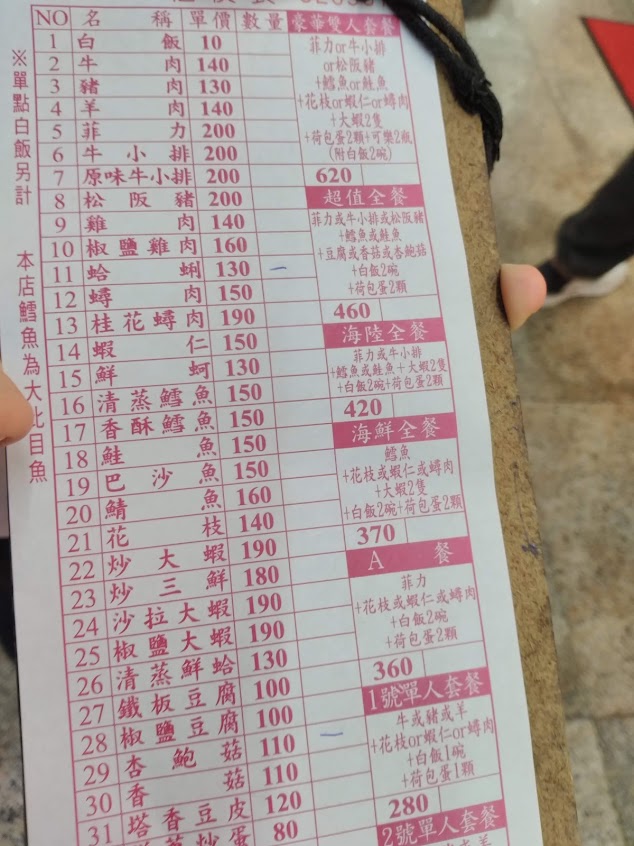 NO 名稱 單價 數量
1 白飯 10
2 牛肉 140
3 豬肉 130
4 羊肉 140
5 菲力 200
6 牛小排 200
7 原味牛小排 200
8 松阪豬 200
9 雞肉 140
10 椒鹽雞肉 160
11 蛤蜊 130
12 蟳肉 150
13 桂花蟳肉 190
14 蝦仁 150
15 鮮蚵 130
16 清蒸鱈魚 150
17 香酥鱈魚 150
18 鮭魚 150
19 巴沙魚 150
20 鯖魚 160
21 花枝 140
22 炒大蝦 190
23 炒三鮮 180
24 沙拉大蝦 190
25 椒鹽大蝦 190
26 清蒸鮮蛤 130
27 鐵板豆腐 100
28 椒鹽豆腐 100
29 杏鮑菇 110
30 香菇 110
31 塔香豆皮 120
炒蛋 80
豪華雙人套餐
菲力or牛小排
or松阪豬
+鱈魚or鮭魚
+花枝or蝦仁or蟳肉
+大蝦2隻
+荷包蛋2顆+可樂2瓶
(附白飯2碗)
620
超值全餐
菲力或牛小排或松阪豬
+鱈魚或鮭魚
+豆腐或香菇或杏鮑菇
+白飯2碗
+荷包蛋2顆
460
海陸全餐
菲力或牛小排
+鱈魚或鮭魚+大蝦2隻
+白飯2碗+荷包蛋2顆
420
海鮮全餐
鱈魚
+花枝或蝦仁或蟳肉
+大蝦2隻
+白飯2碗+荷包蛋2顆
370
A餐
菲力
+花枝或蝦仁或蟳肉
+白飯2碗
+荷包蛋2顆
360
1號單人套餐
牛或豬或羊
+花枝or蝦仁or蟳肉
+白飯1碗
+荷包蛋1顆
280
2號單人套餐
※單點白飯另計
本店鱈魚為大比目魚